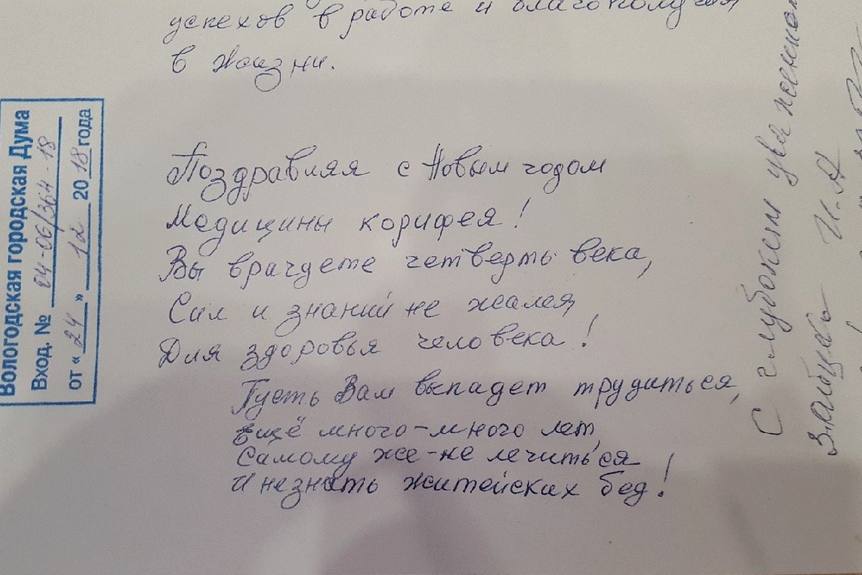 успехов в работе и благополучия
в жизни.
Поздравляя с Новым годом
Медицины корифея!
Вы врачуете четверть века,
Сил и знаний не жалея,
Для здоровья человека!
Пусть Вам выпадет трудиться,
Ещё много-много лет,
Самому же-не лечиться
И незнать житейских бед!
Вологодская городская Дума
Вход. № 04-06/364-18
от « 24 » 12 2018 года
С глубоким
И.А